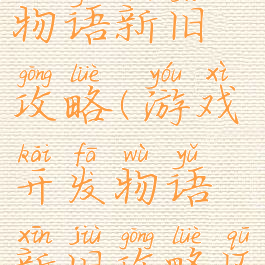 物语新旧
gōng lüè yóu xì
攻略(游戏
kāi fā wù yǔ
开发物语
xīn jiù gōng lüè qū
新旧攻略区